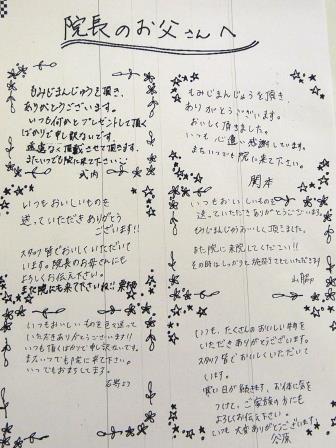 院長のお父さんへ
もみじまんじゅうを頂き、
ありがとうございます。
いつも何かとプレゼントして頂く
ばかりで申し訳ないです。
遠慮なく頂戴させて頂きます。
またいつでも院に来て下さい。
武内
いつもおいしいものを
送っていただきありがとう
ございます!!
スタッフ皆でおいしくいただいて
います。院長のお母さんにも
よろしくお伝え下さい。
また院にも来て下さいね!!
いつもおいしいものを色々送って
いただきありがとうございます!!
いつも頂くばかりで申し訳ないです。
またいつでも院に来て下さい。
いつでもおまちしてます。
もみじまんじゅうを頂き、
ありがとうございます。
おいしく頂きました。
いつも心遣い感謝しています。
またいつでも院に来て下さい。
関本
いつもおいしいものを
送っていただき、ありがとうございます。
もみじまんじゅうおいしく頂きました。
また院に来院してください!!
その時はしっかりと施術させていただきます!
山脇
いつも、たくさんのおいしい物を
いただきありがとうございます。
スタッフ皆でおいしくいただいて
います。
寒い日が続きますが、お体に気を
つけて、ご家族の方にも
よろしくお伝え下さい。
いつも大変ありがとうございます。